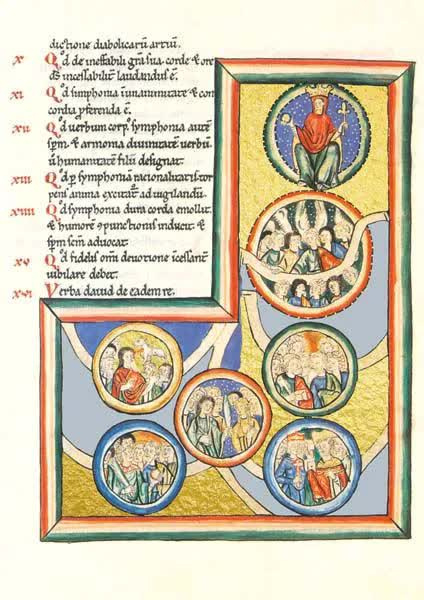 dictione diabolicarū artiū.
x Qd de ineffabili grā sua corde & ore
ds incessabilit laudandus ē.
xi Qd simphonia ī unanimitate & con
cordia pferenda ē.
xii Qd verbum corp symphonia aute
spm & armonia divinitate verbu
u humanitate filii designat.
xiii Qd p symphoniā racionalitatis tor
pens anima excitat ad vigilandū.
xiiii Qd simphonia dura corda emollit
& humorē cpunctionis inducit &
spm scm advocat.
xv Qd fidelis omi devotione icessant
iubilare debet.
xvi Verba david de eadem re.